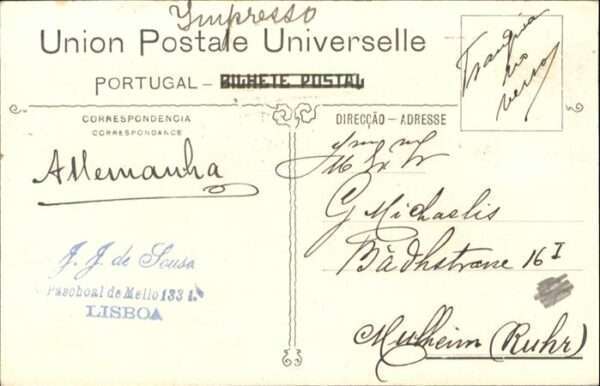 Impresso
Union Postale Universelle
PORTUGAL – BILHETE POSTAL
Franquia
no
verso
CORRESPONDENCIA
CORRESPONDANCE
DIRECÇÃO – ADRESSE
Allemanha
G Michaelis
Bàdhstrasse 16 I
Mulheim (Ruhr)
J. J. de Sousa
Paschoal de Mello 133 1.º
LISBOA